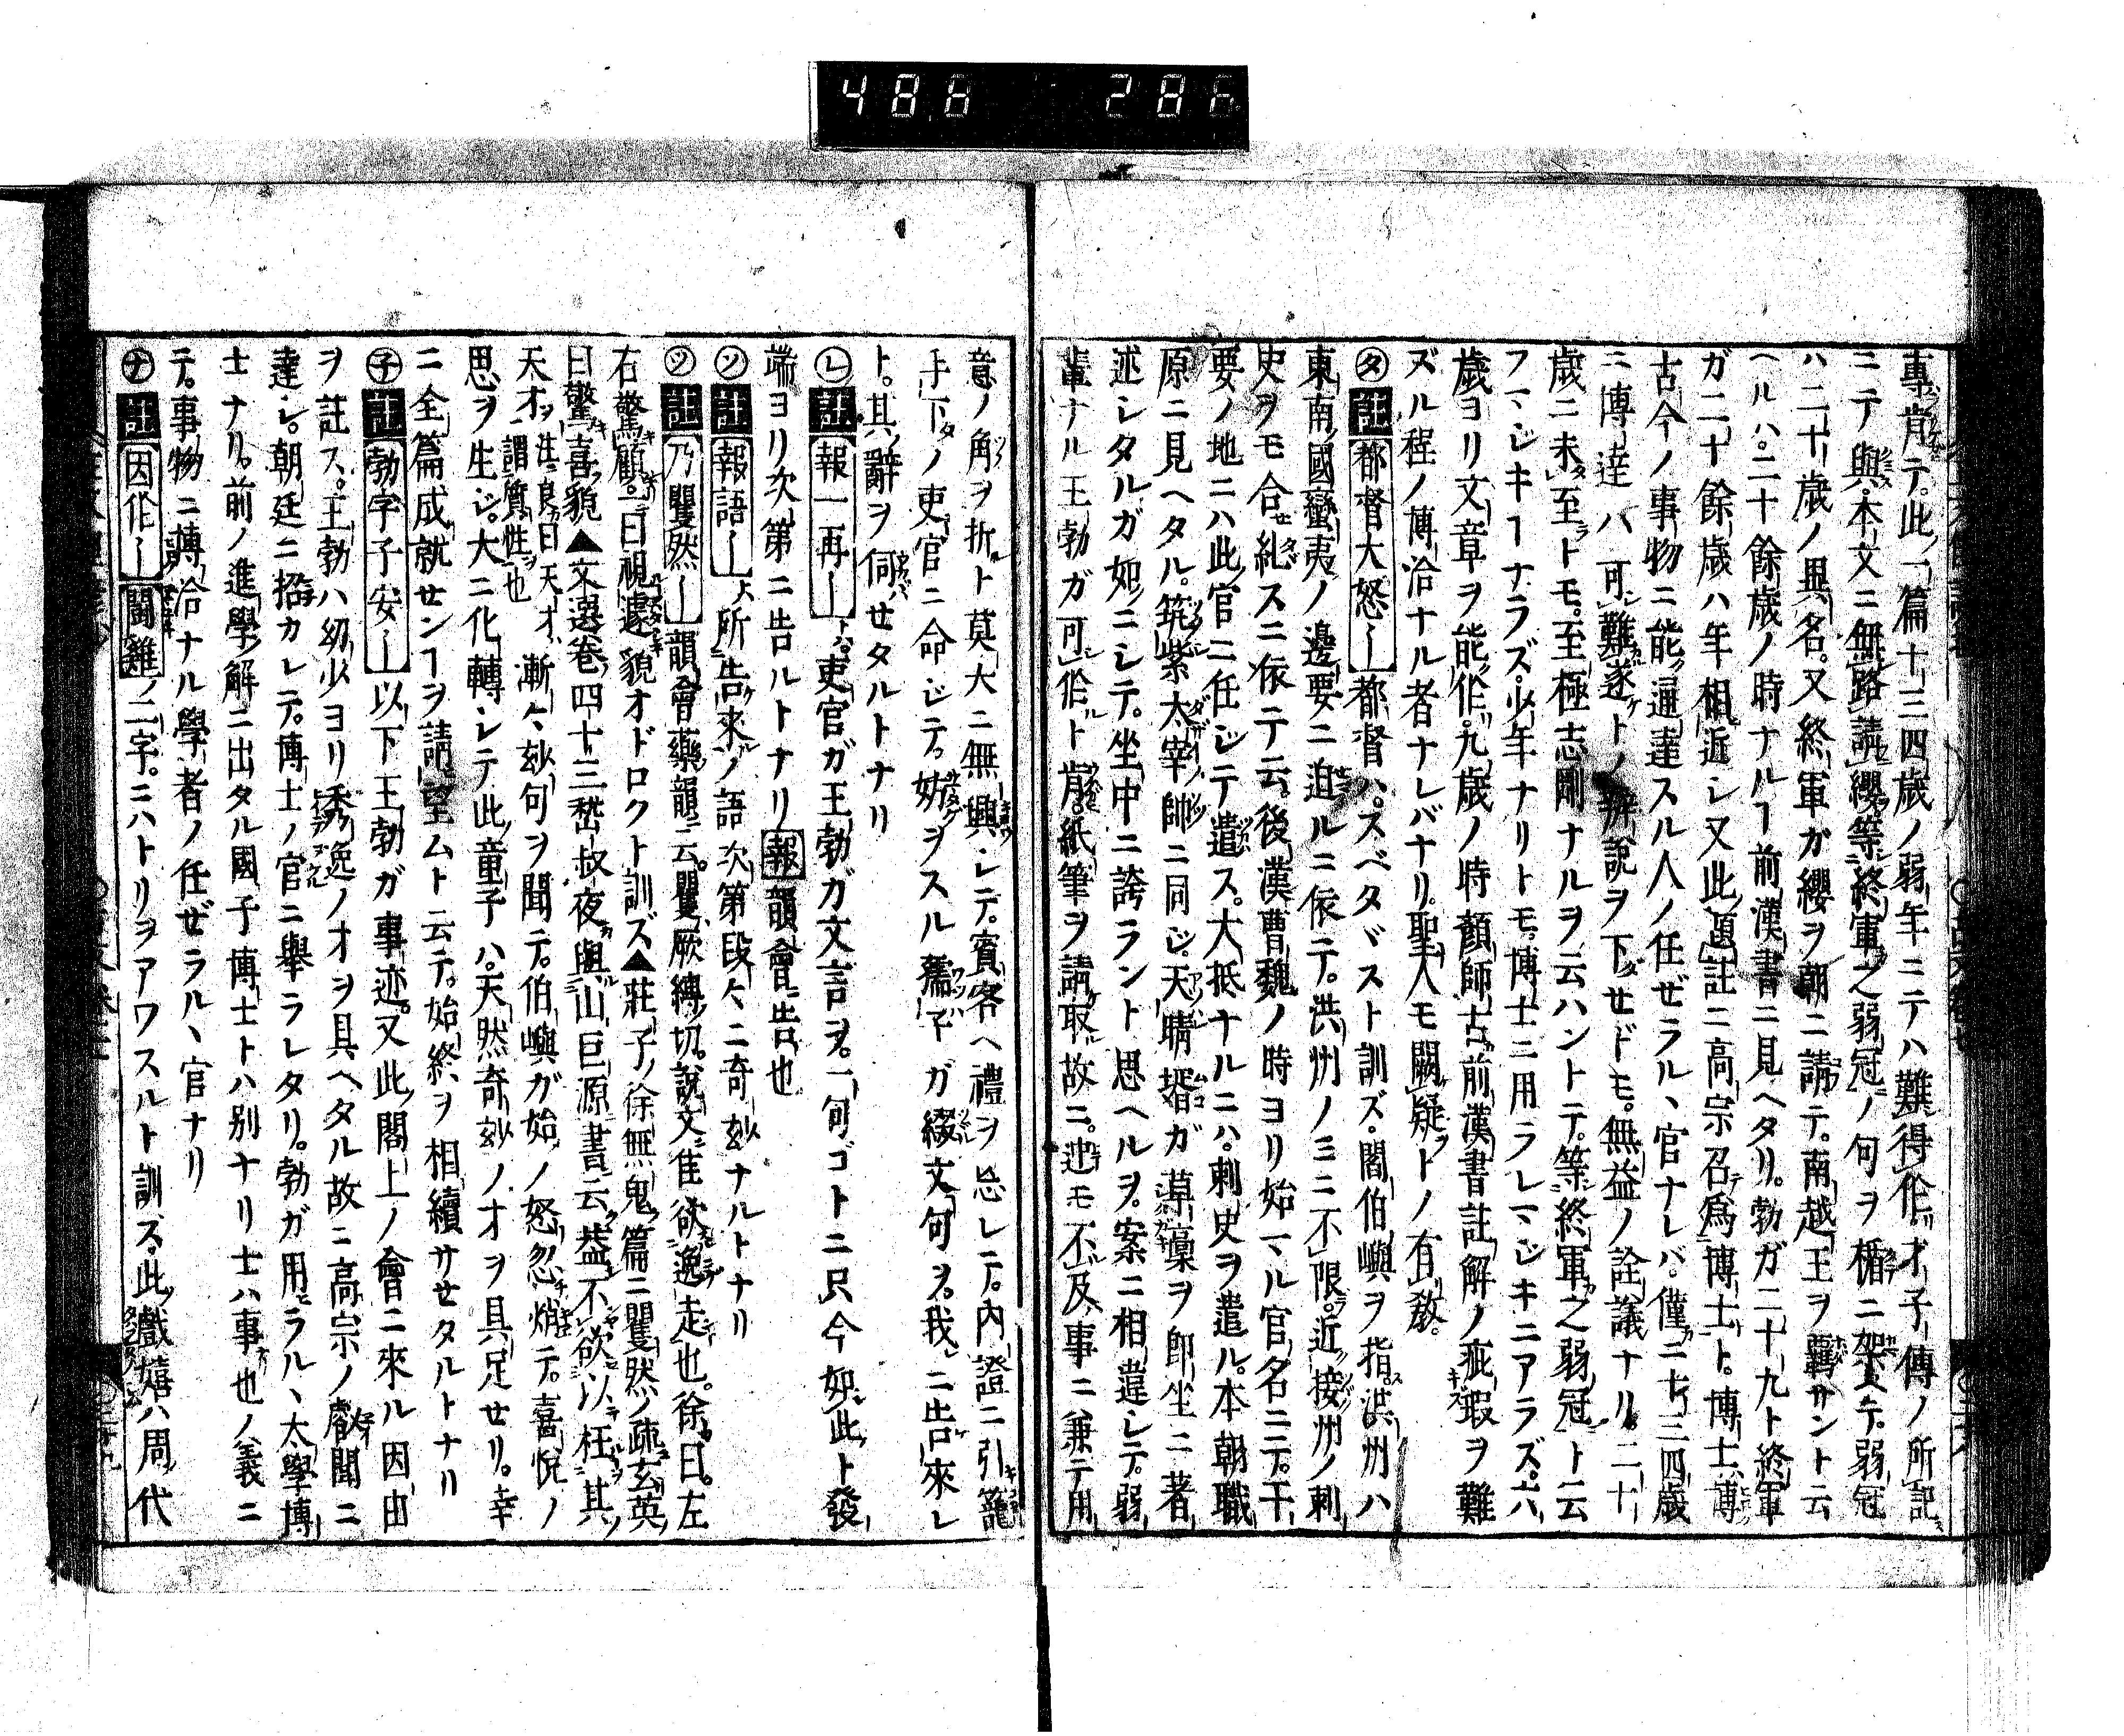 486 286
專肯テ此ノ一篇十三四歳ノ弱年ニテハ難得作才子傳ノ所記
ニテ與本文ニ無路請纓等終軍之弱冠ノ句ヲ楯ニ架上テ弱冠
ハ二十歳ノ異名又終軍ガ纓ヲ朝ニ請テ南越王ヲ羈サント云
ヘルハ二十餘歳ノ時ナルヿ前漢書ニ見ヘタリ勃ガ二十九ト終軍
ガ二十餘歳ハ年相近シ又此題註ニ高宗召爲博士ト博士ハ博
古今ノ事物ニ能通達スル人ノ任ゼラルヽ官ナレバ僅ニ十三四歳
ニ博達ハ可難遂トノ辨説ヲ下セドモ無益ノ詮議ナリ二十
歳ニ未至トモ至極志剛ナルヲ云ハントテ等終軍之弱冠ト云
フマジキヿナラズ少年ナリトモ博士ニ用ラレマジキニアラズ六
歳ヨリ文章ヲ能作九歳ノ時顔師古前漢書註解ノ疵瑕ヲ難
ズル程ノ博洽ナル者ナレバナリ聖人モ闕疑トノ有教
㋟註都督大怒―都督ハスベタヾスト訓ズ閻伯嶼ヲ指洪州ハ
東南ノ國蠻夷ノ邊要ニ迫ルニ依テ洪州ノミニ不限近接州ノ刺
史ヲモ合セ糺スニ依テ云後漢曹魏ノ時ヨリ始マル官名ニテ干
要ノ地ニハ此官ニ任ジテ遣ス大抵ナルニハ刺史ヲ遣ル本朝職
原ニ見ヘタル筑紫大宰帥ニ同ジ天晴壻ガ草稾ヲ卽坐ニ著
述シタルガ如ニシテ坐中ニ誇ラント思ヘルヲ案ニ相違シテ弱
輩ナル王勃ガ可作ト肯紙筆ヲ請取故ニ迚モ不及事ニ兼テ用
意ノ角ヲ折ト莫大ニ無興シテ賓客ヘ禮ヲ忘レテ内證ニ引籠
手下ノ吏官ニ命ジテ妨ヲスル孺子ガ綴文句ヲ我ニ告來レ
ト其辭ヲ伺セタルトナリ
㋹註報一再―ト吏官ガ王勃ガ文言ヲ一句ゴトニ只今如此ト發
端ヨリ次第ニ告ルトナリ報韻會告也
㋞註報語―ト所告來ノ語次第段々ニ奇玅ナルトナリ
㋡註乃矍然―韻會藥韻云矍厥縛切説文隹欲逸走也徐曰左
右驚顧曰視遽貌オドロクト訓ズ▲莊子徐無鬼篇ニ矍然ノ疏玄英
曰驚喜貌▲文選巻四十三嵆叔夜與山巨源書云益不欲以枉其
天才ヲ註良曰天才謂質性也漸々玅句ヲ聞テ伯嶼ガ始ノ怒忍悄テ喜悅ノ
思ヲ生ジ大ニ化轉シテ此童子ハ天然奇玅ノ才ヲ具足セリ幸
ニ全篇成就センヿヲ請望ムト云テ始終ヲ相續サセタルトナリ
㋧註勃字子安―以下王勃ガ事迹又此閣上ノ會ニ來ル因由
ヲ註ス王勃ハ幼少ヨリ秀逸ノ才ヲ具ヘタル故ニ高宗ノ叡聞ニ
達シ朝廷ニ招カレテ博士ノ官ニ擧ラレタリ勃ガ用ラルヽ太學博
士ナリ前ノ進學解ニ出タル國子博士トハ別ナリ士ハ事也ノ義ニ
テ事物ニ博洽ナル學者ノ任ゼラルヽ官ナリ
㋤註因作―鬭雞ノ二字ニハトリヲアワスルト訓ス此戲嬉ハ周代